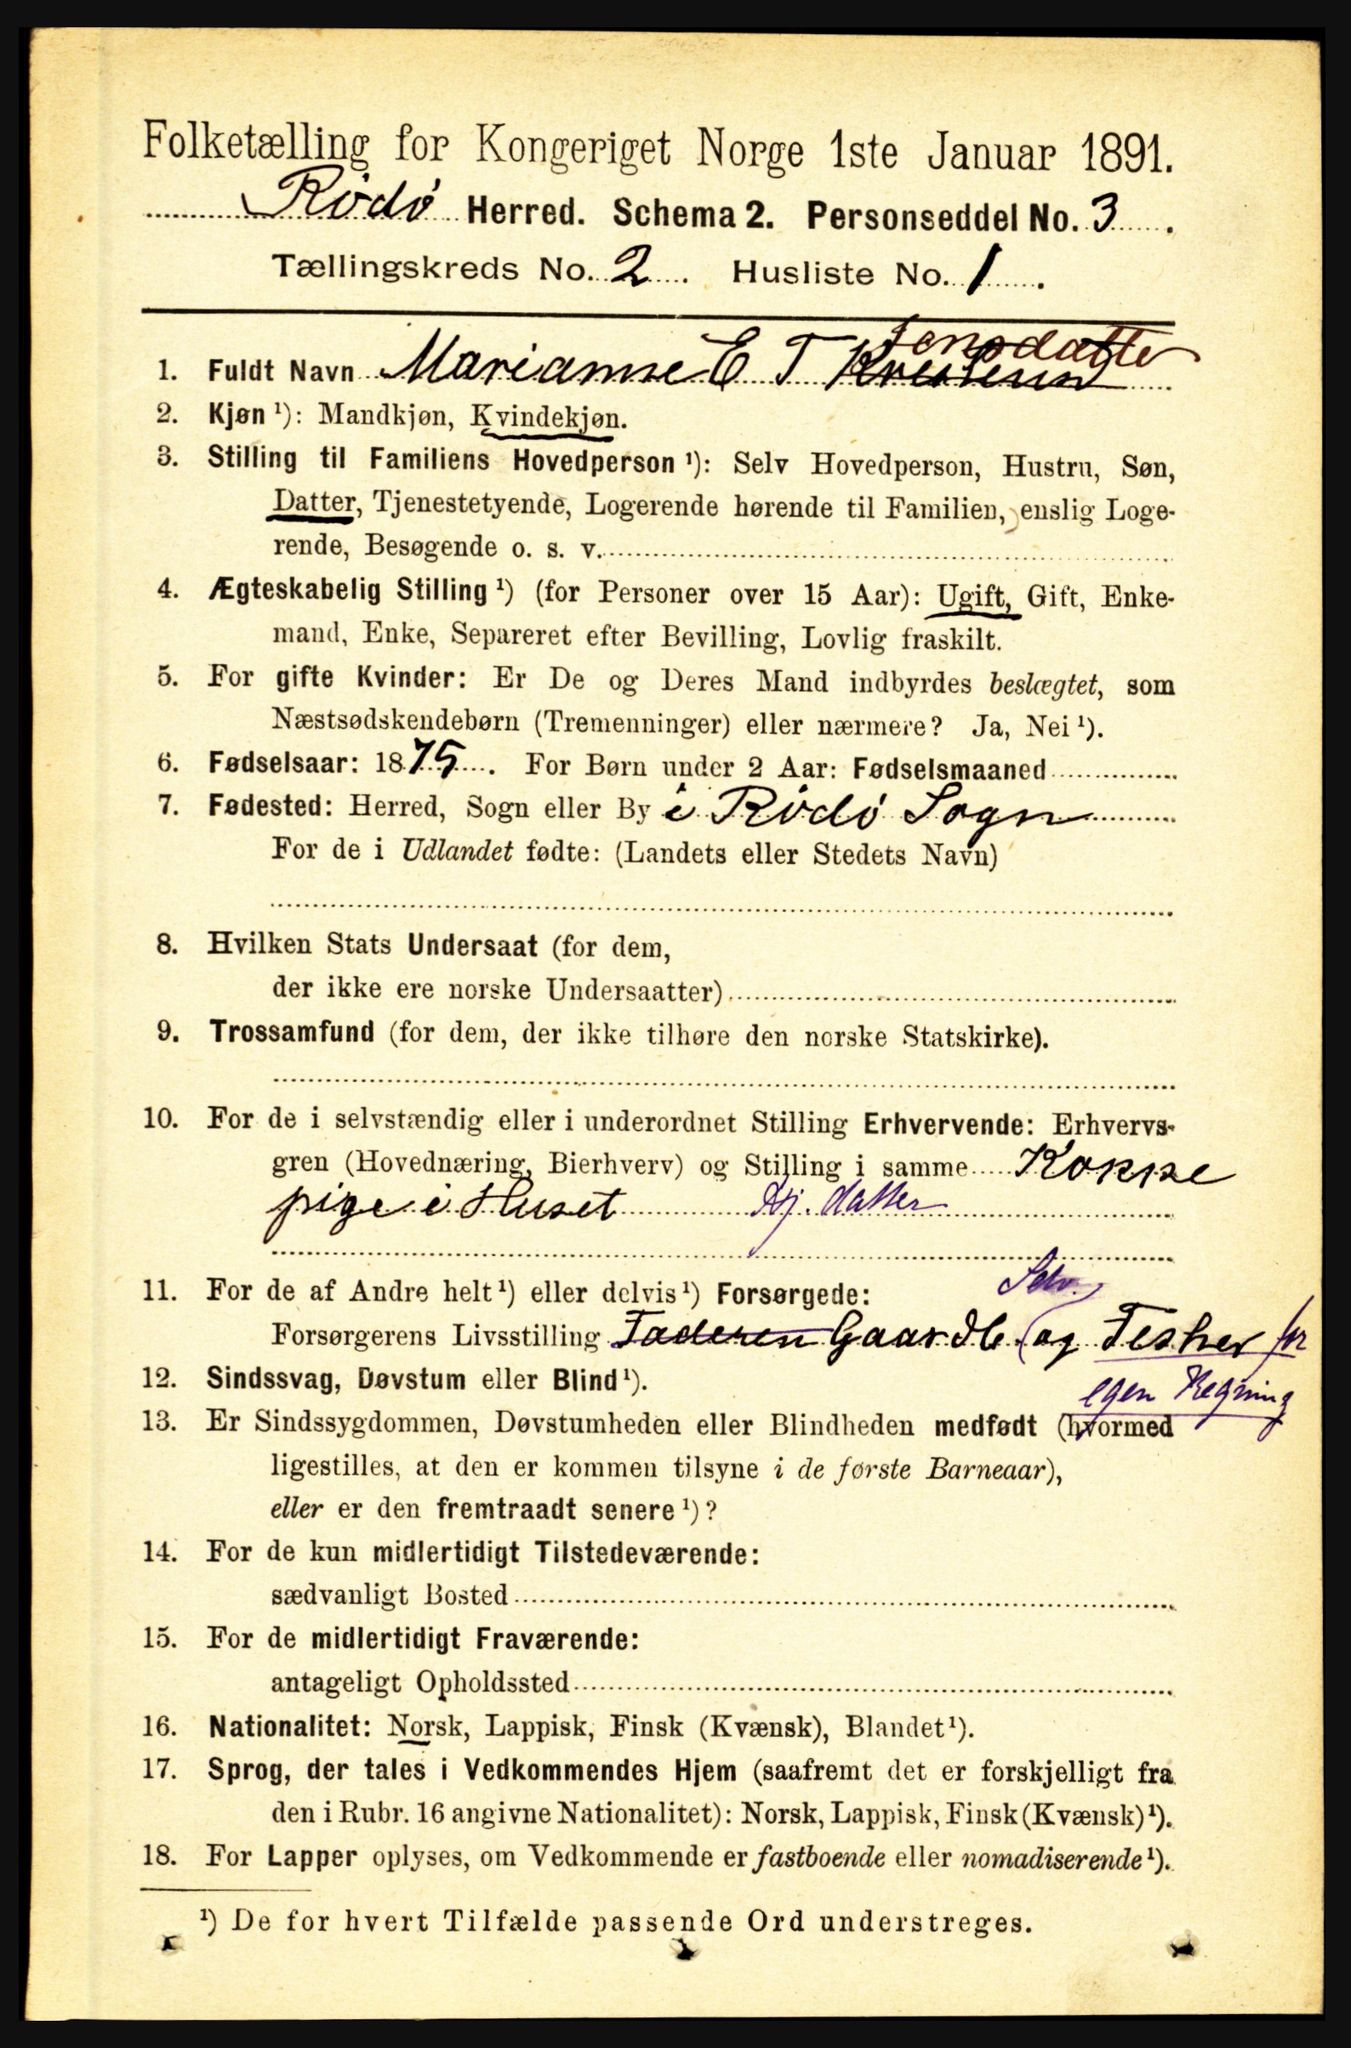 Folketælling for Kongeriget Norge 1ste Januar 1891.
Rödö Herred. Schema 2. Personseddel No. 3.
Tællingskreds No. 2. Husliste No. 1.
Jensdatter
1. Fuldt Navn Marianne E T
2. Kjøn ¹): Mandkjøn, Kvindekjøn.
3. Stilling til Familiens Hovedperson ¹): Selv Hovedperson, Hustru, Søn,
Datter, Tjenestetyende, Logerende hørende til Familien, enslig Loge-
rende, Besøgende o. s. v.
4. Ægteskabelig Stilling ¹) (for Personer over 15 Aar): Ugift, Gift, Enke-
mand, Enke, Separeret efter Bevilling, Lovlig fraskilt.
5. For gifte Kvinder: Er De og Deres Mand indbyrdes beslægtet, som
Næstsødskendebørn (Tremenninger) eller nærmere? Ja, Nei ¹).
6. Fødselsaar: 1875. For Børn under 2 Aar: Fødselsmaaned
7. Fødested: Herred, Sogn eller By i Rödö Sogn
For de i Udlandet fødte: (Landets eller Stedets Navn)
8. Hvilken Stats Undersaat (for dem,
der ikke ere norske Undersaatter)
9. Trossamfund (for dem, der ikke tilhøre den norske Statskirke).
10. For de i selvstændig eller i underordnet Stilling Erhvervende: Erhvervs-
gren (Hovednæring, Bierhverv) og Stilling i samme Kokke
pige i Huset datter
11. For de af Andre helt ¹) eller delvis ¹) Forsørgede: Selv.
Forsørgerens Livsstilling Faderen Gaardb. og Fisker for
egen Regning
12. Sindssvag, Døvstum eller Blind ¹).
13. Er Sindssygdommen, Døvstumheden eller Blindheden medfødt (hvormed
ligestilles, at den er kommen tilsyne i de første Barneaar),
eller er den fremtraadt senere ¹)?
14. For de kun midlertidigt Tilstedeværende:
sædvanligt Bosted
15. For de midlertidigt Fraværende:
antageligt Opholdssted
16. Nationalitet: Norsk, Lappisk, Finsk (Kvænsk), Blandet ¹).
17. Sprog, der tales i Vedkommendes Hjem (saafremt det er forskjelligt fra
den i Rubr. 16 angivne Nationalitet): Norsk, Lappisk, Finsk (Kvænsk) ¹).
18. For Lapper oplyses, om Vedkommende er fastboende eller nomadiserende ¹).
¹) De for hvert Tilfælde passende Ord understreges.